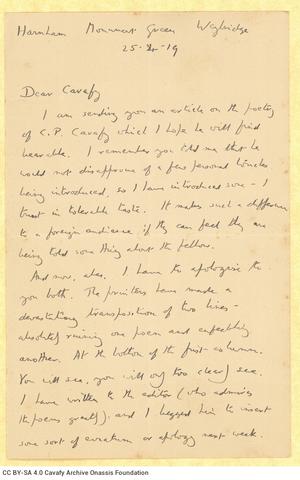 Harnham Monument Green Weybridge
25-4-19
Dear Cavafy
I am sending you an article on the poetry
of C.P. Cavafy which I hope he will find
bearable. I remember you told me that he
would not disapprove of a few personal touches
being introduced, so I have introduced some - I
trust in tolerable taste. It makes such a difference
to a foreign audience if they can feel they are
being told something about the fellow.
And now, alas, I have to apologise to
you both. The printers have made a
devastating transposition of two lines -
absolutely ruining one poem and enfeebling
another. At the bottom of the first column.
You will see, you will only too clearly see.
I have written to the editor (who admires
the poems greatly), and I begged him to insert
some sort of erratum or apology next week.
CC BY-SA 4.0 Cavafy Archive Onassis Foundation